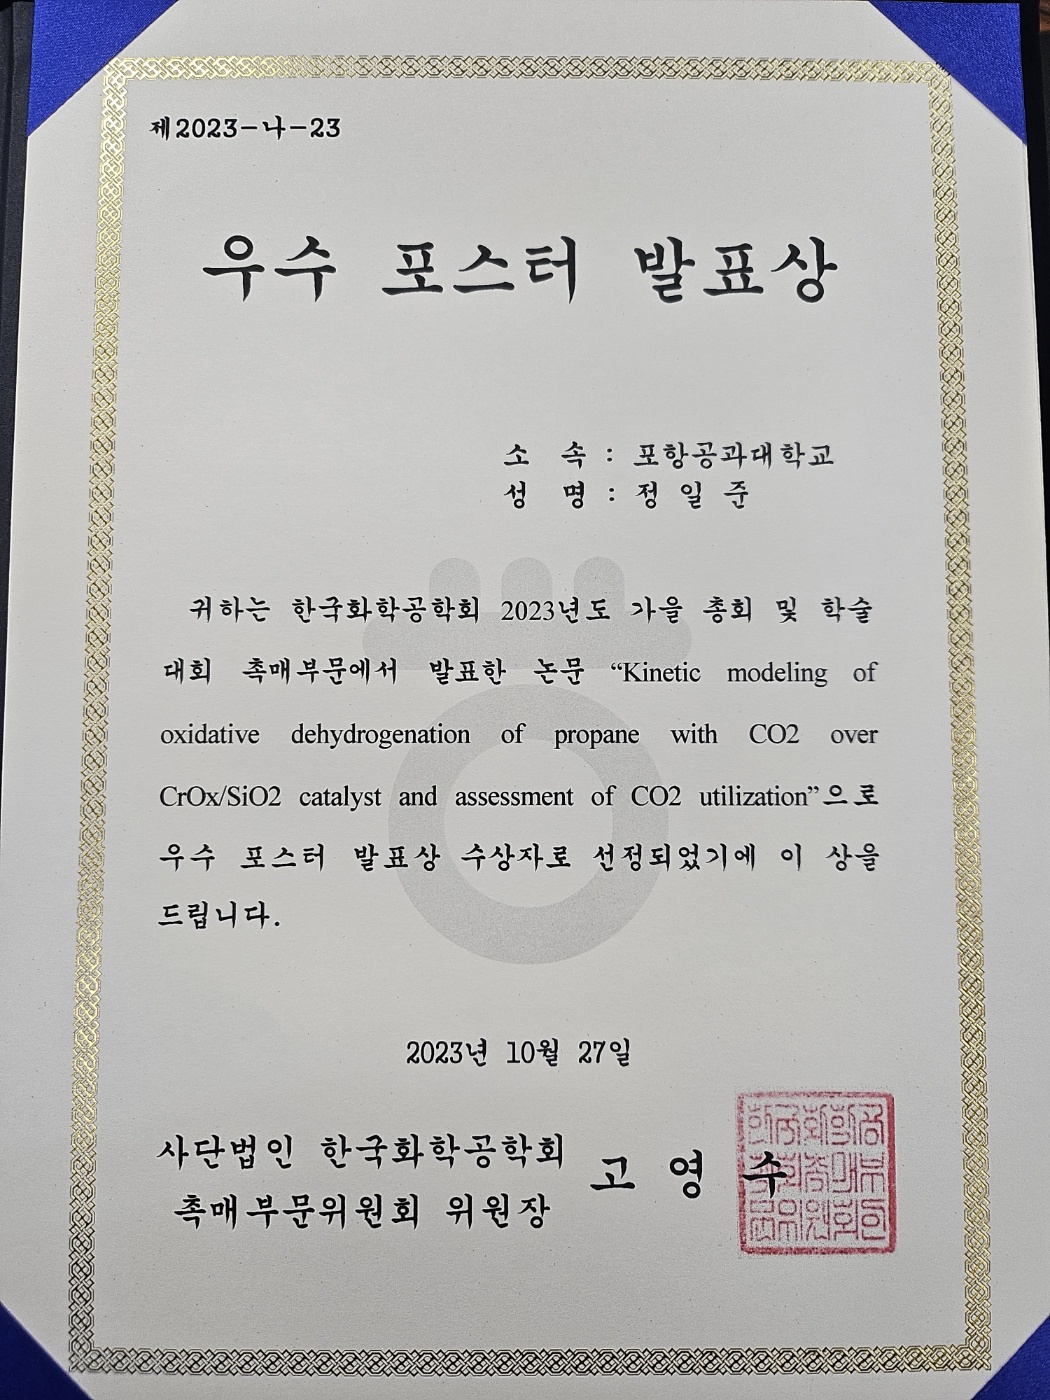 제2023-나-23
우수 포스터 발표상
소 속 : 포항공과대학교
성 명 : 정 일 준
귀하는 한국화학공학회 2023년도 가을 총회 및 학술
대회 촉매부문에서 발표한 논문 “Kinetic modeling of
oxidative dehydrogenation of propane with CO2 over
CrOx/SiO2 catalyst and assessment of CO2 utilization”으로
우수 포스터 발표상 수상자로 선정되었기에 이 상을
드립니다.
2023년 10월 27일
사단법인 한국화학공학회
촉매부문위원회 위원장
고 영 수